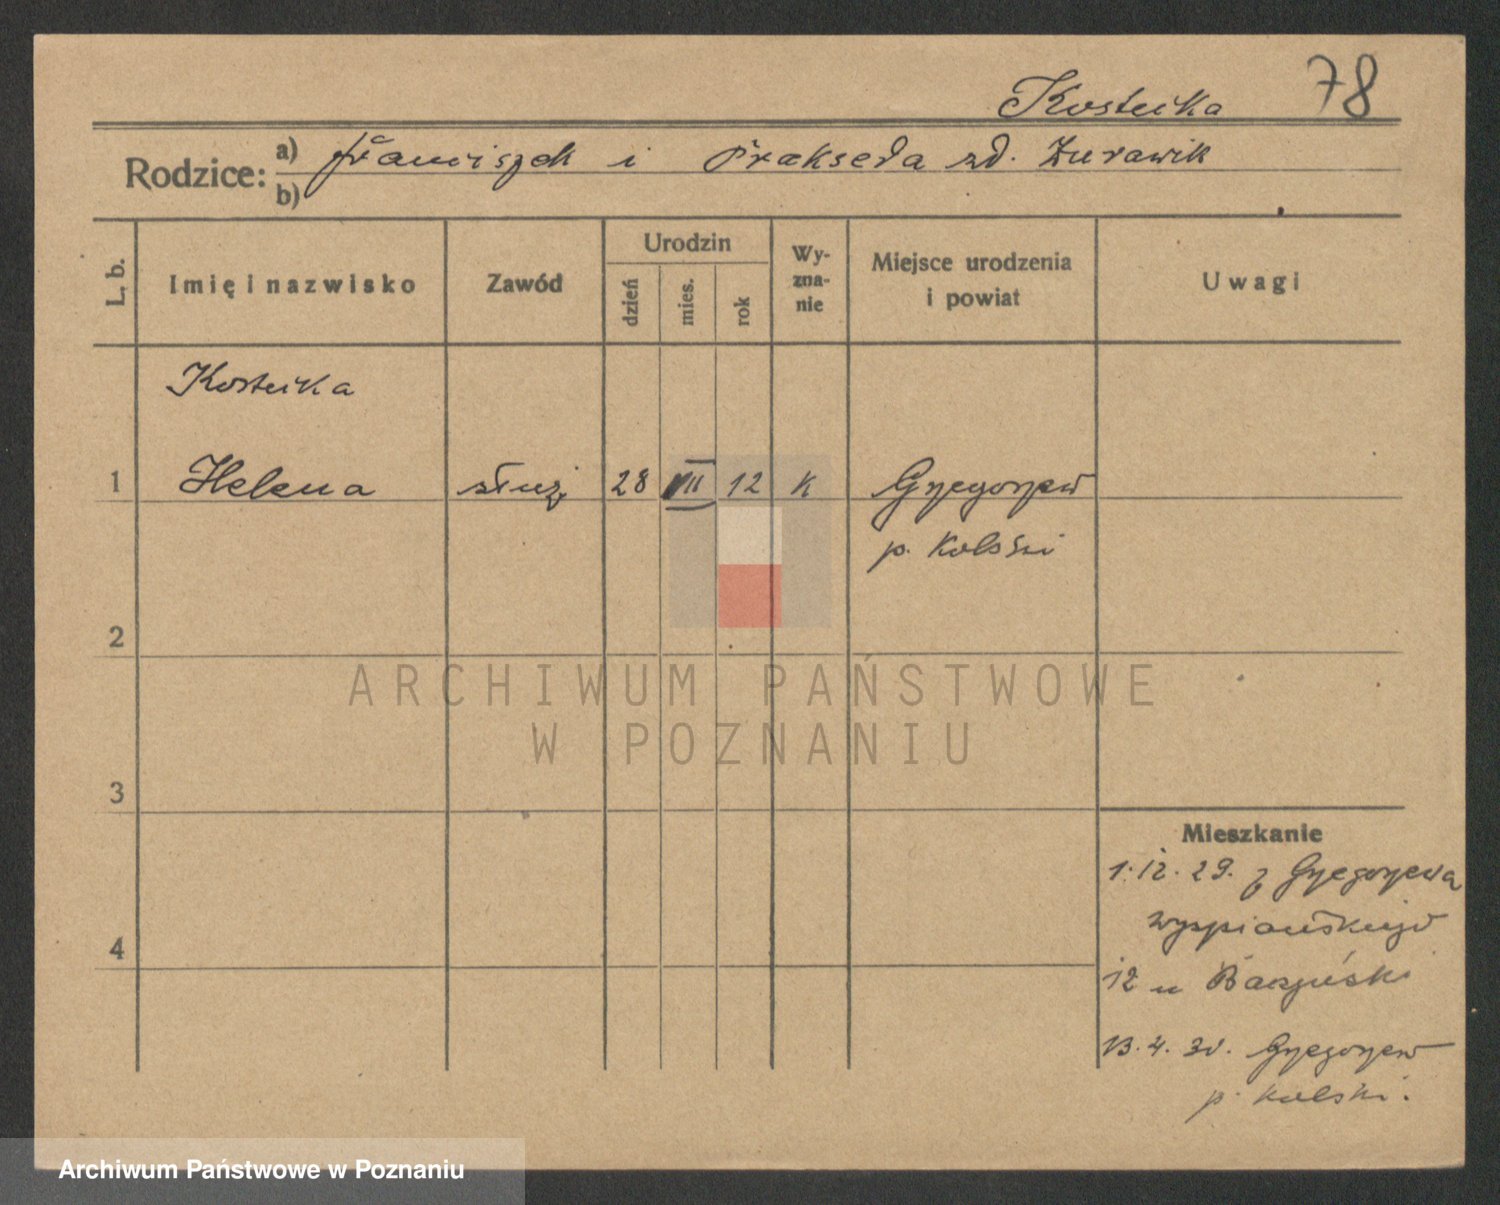 78
Rodzice: a) Franciszek i Prakseda zd. Żurawik
b)
L. b.
Imię i nazwisko
Zawód
Urodzin
dzień
mies.
rok
Wy-
zna-
nie
Miejsce urodzenia
i powiat
Uwagi
1 Helena służ. 28 VII 12 K Grzegorzew
p. Kolski
2
3
4
Mieszkanie
1.12.29. z Grzegorzewa
Wyspiańskiego
12 u
13.4.30. Grzegorzew
p. Kolski.
ARCHIWUM PAŃSTWOWE
W POZNANIU
Archiwum Państwowe w Poznaniu